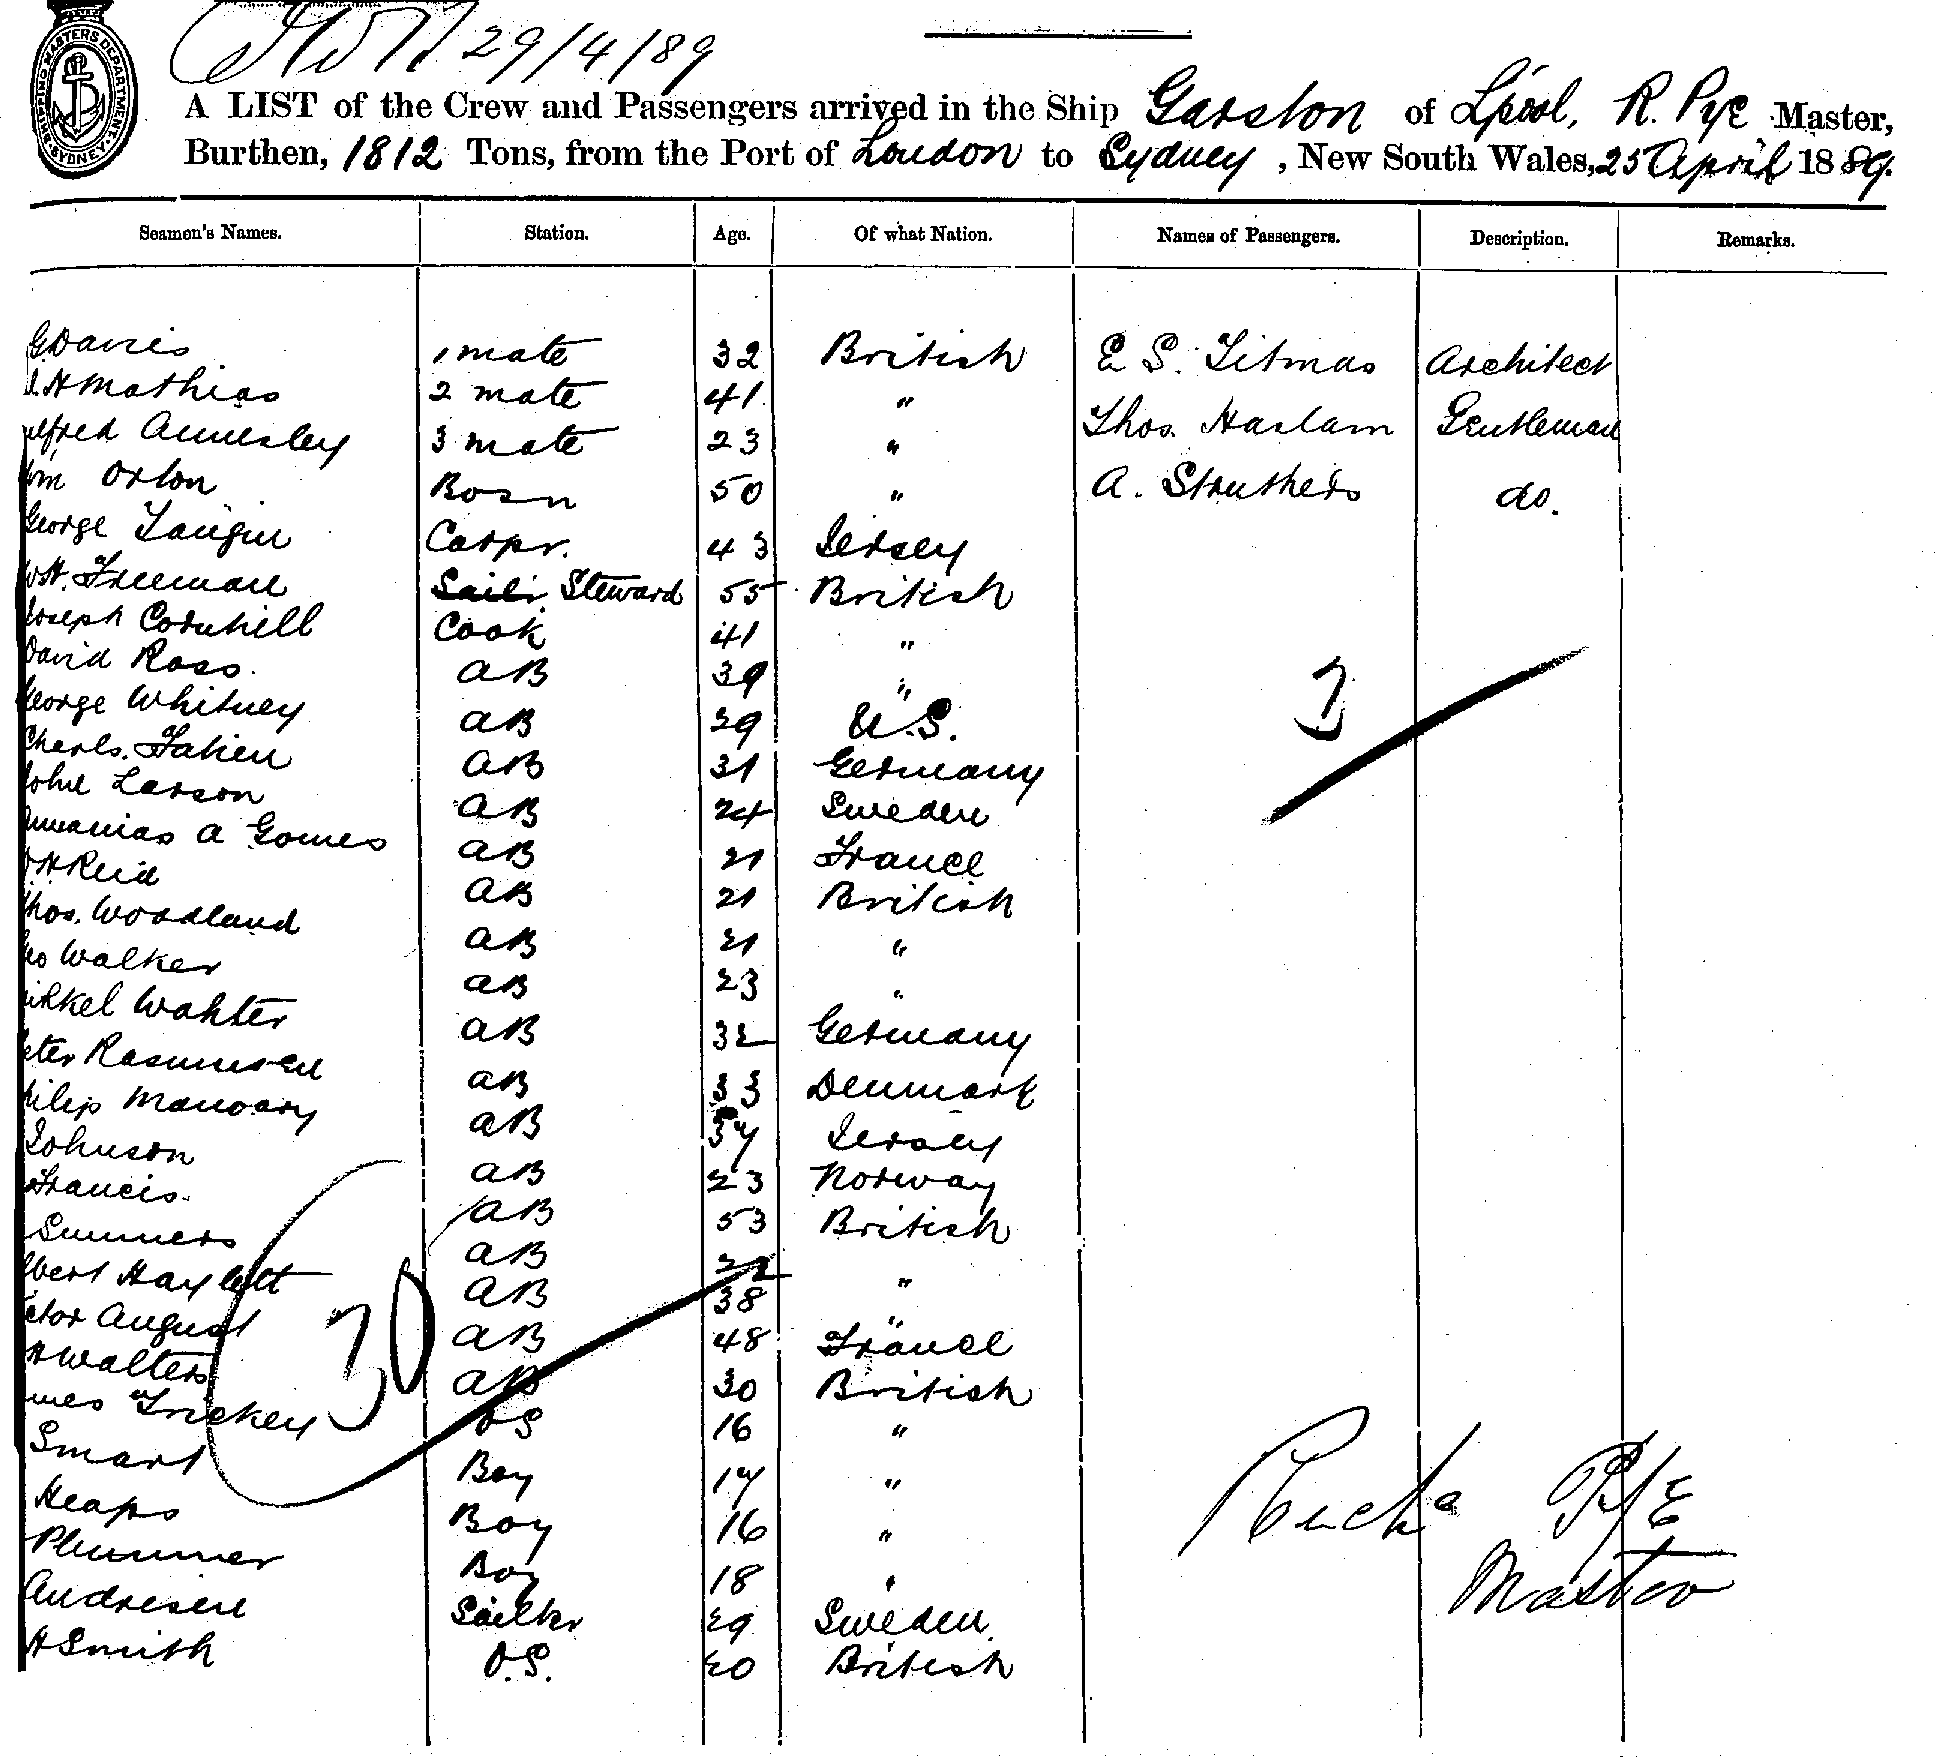 SHIPPING MASTERS DEPARTMENT SYDNEY
29/4/89
A LIST of the Crew and Passengers arrived in the Ship Garston of Lpool, R. Pye Master,
Burthen, 1812 Tons, from the Port of London to Sydney, New South Wales, 25 April 1889.
Seamen's Names. Station. Age. Of what Nation. Names of Passengers. Description. Remarks.
G Davies 1 mate 32 British E S. Titmas Architect
H Mathias 2 mate 41 " Thos. Haslam Gentleman
lfred Annesley 3 mate 23 " A. Struthers do.
Wm Orton Bosn 50 "
George Carpr. 43 Jersey
W H. Freeman Steward 55 British
Joseph Cornhill Cook 41 "
David Ross. AB 39 "
George Whitney AB 29 U.S.
Charls. AB 31 Germany
John Larson AB 24 Sweden
A Gomes AB 21 France
H Reid AB 21 British
Thos. Woodland AB 21 "
Walker AB 23 "
ikkel Wahter AB 32 Germany
eter Rasmussen AB 33 Denmark
hilip AB 37 Jersey
Johnson AB 23 Norway
Francis. AB 53 British
Summers AB 22 "
lbert Haylett AB 38 "
ctor August AB 48 France
H Walters AB 30 British
ames Trickey OS 16 "
Smart Boy 17 "
Heaps Boy 16 "
Plummer Boy 18 "
Andresen Sailkr 29 Sweden.
H Smith O.S. 20 British
3
30
Richd Pye
Master